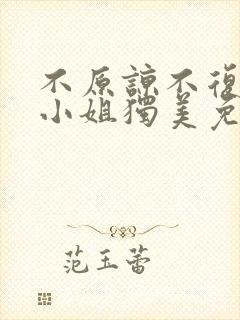 不原諒不復
小姐獨美免
范玉蕾